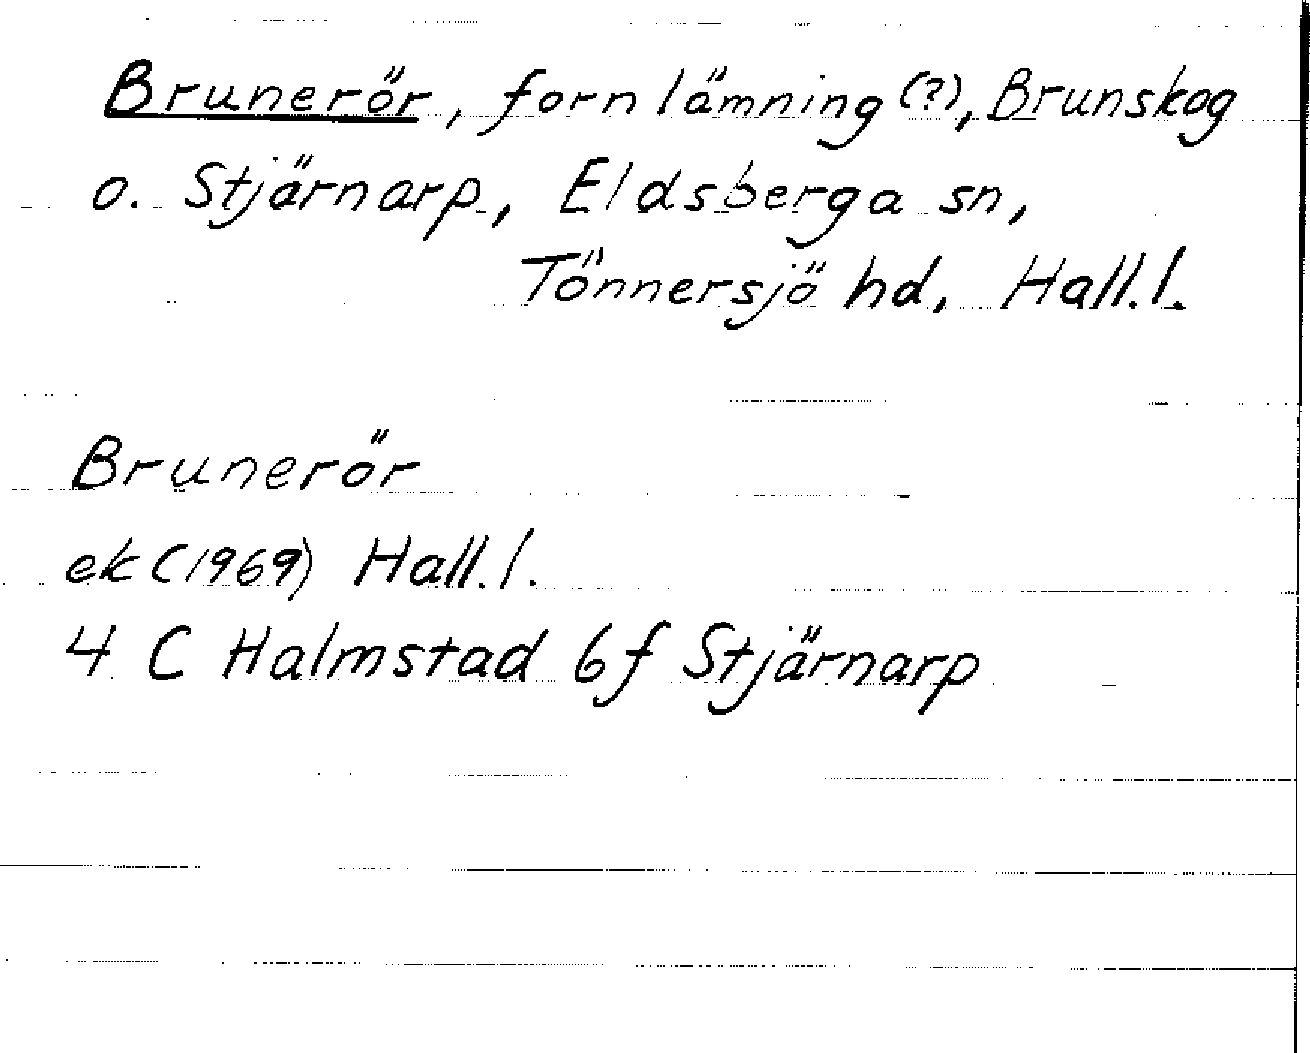 Brunerör, fornlämning (?), Brunskog
o. Stjärnarp, Eldsberga sn,
Tönnersjö hd, Hall.l.
Brunerör
ek (1969) Hall.l.
4 C Halmstad 6f Stjärnarp